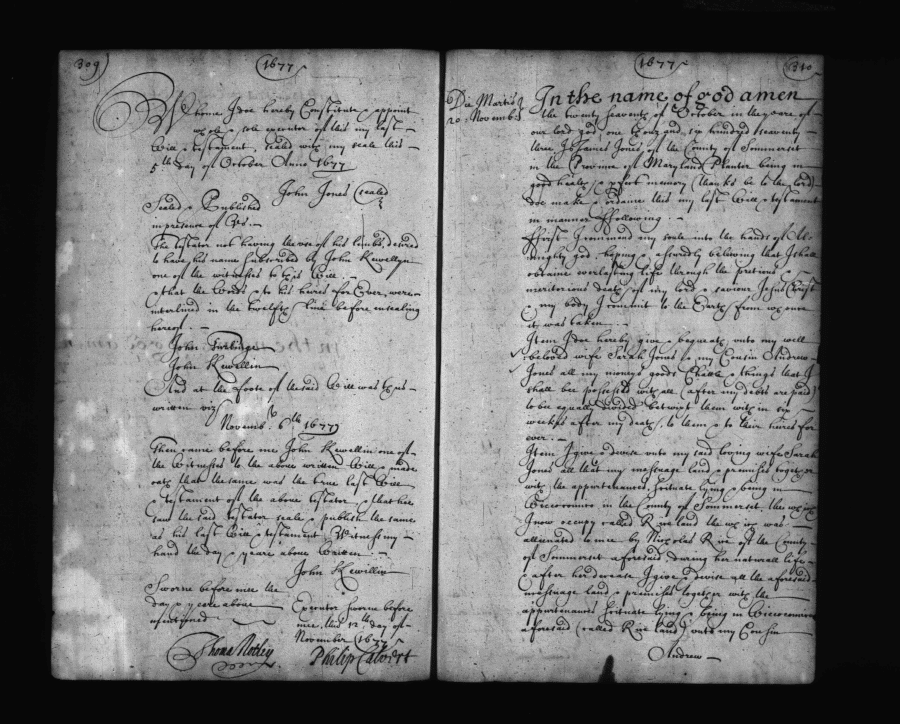 309
1677
Whome I doe hereby Constitute & appoint
whole & sole executor of this my last
Will & testament, sealed with my seale this
5th day of October Anno 1677
John Jones sealed
Sealed & Published
in presence of
The testator not having the use of his limbs, desired
to have his name subscribed by John Kewellyn
one of the witnesses to this Will.
& that the Words & to his heires for Ever, were
interlined in the twelfth line before ensealing
hereof.
John
John Kewellin
And at the foote of the said Will was thus
written viz
Novemb: 6th 1677
Then came before me John Kewellin one of
the Witnesses to the above written Will & made
oath that the same was the true last Will
& testament of the above testator & that hee
saw the said testator seale & publish the same
as his last Will & testament Witness my
hand the day & yeare above Written
John Kewellin
Sworne before me the
day & yeare above
mentioned
Thomas Notley
Executor sworne before
me, this 12th day of
November 1677
Philip Calvert
1677
310
Die Martis
20 Novemb:
In the name of god amen
the twenty seaventh of October in the yeare of
our lord god one thousand six hundred seaventy
three I James Jones of the County of Sommerset
in the Province of Maryland Planter being in
good health & perfect memory (thanks be to the lord)
doe make & ordaine this my last Will & testament
in manner following.
ffirst I commend my soule into the hands of Al
mighty god, hoping & assuredly beleiving that I shall
obtaine everlasting life through the pretious &
meritorious death of my lord & saviour Jesus Christ
& my body I commit to the Earth from whence
it was taken
Item I doe hereby give & bequeath unto my well
beloved wife Sarah Jones & my Cousin Andrew
Jones all my moneys goods Chattles & things that I
shall bee possessed withall (after my debts are paid)
to be equally divided betwixt them within six
weekes after my death, to them & to their heires for
ever.
Item I give & devise unto my said loving wife Sarah
Jones all that my messuage land & premises together
with the appurtenances scituate lying & being in
Wiccocomico in the County of Sommerset, the which
I now occupy called Rice land the which was
allienated to me by Nicholas Rice of the County
of Sommerset aforesaid, during her naturall life
& after her decease I give & devise all the aforesaid
messuage land & premises together with the
appurtenances scituate lying & being in Wiccocomico
aforesaid (called Rice land) unto my Cousin
Andrew